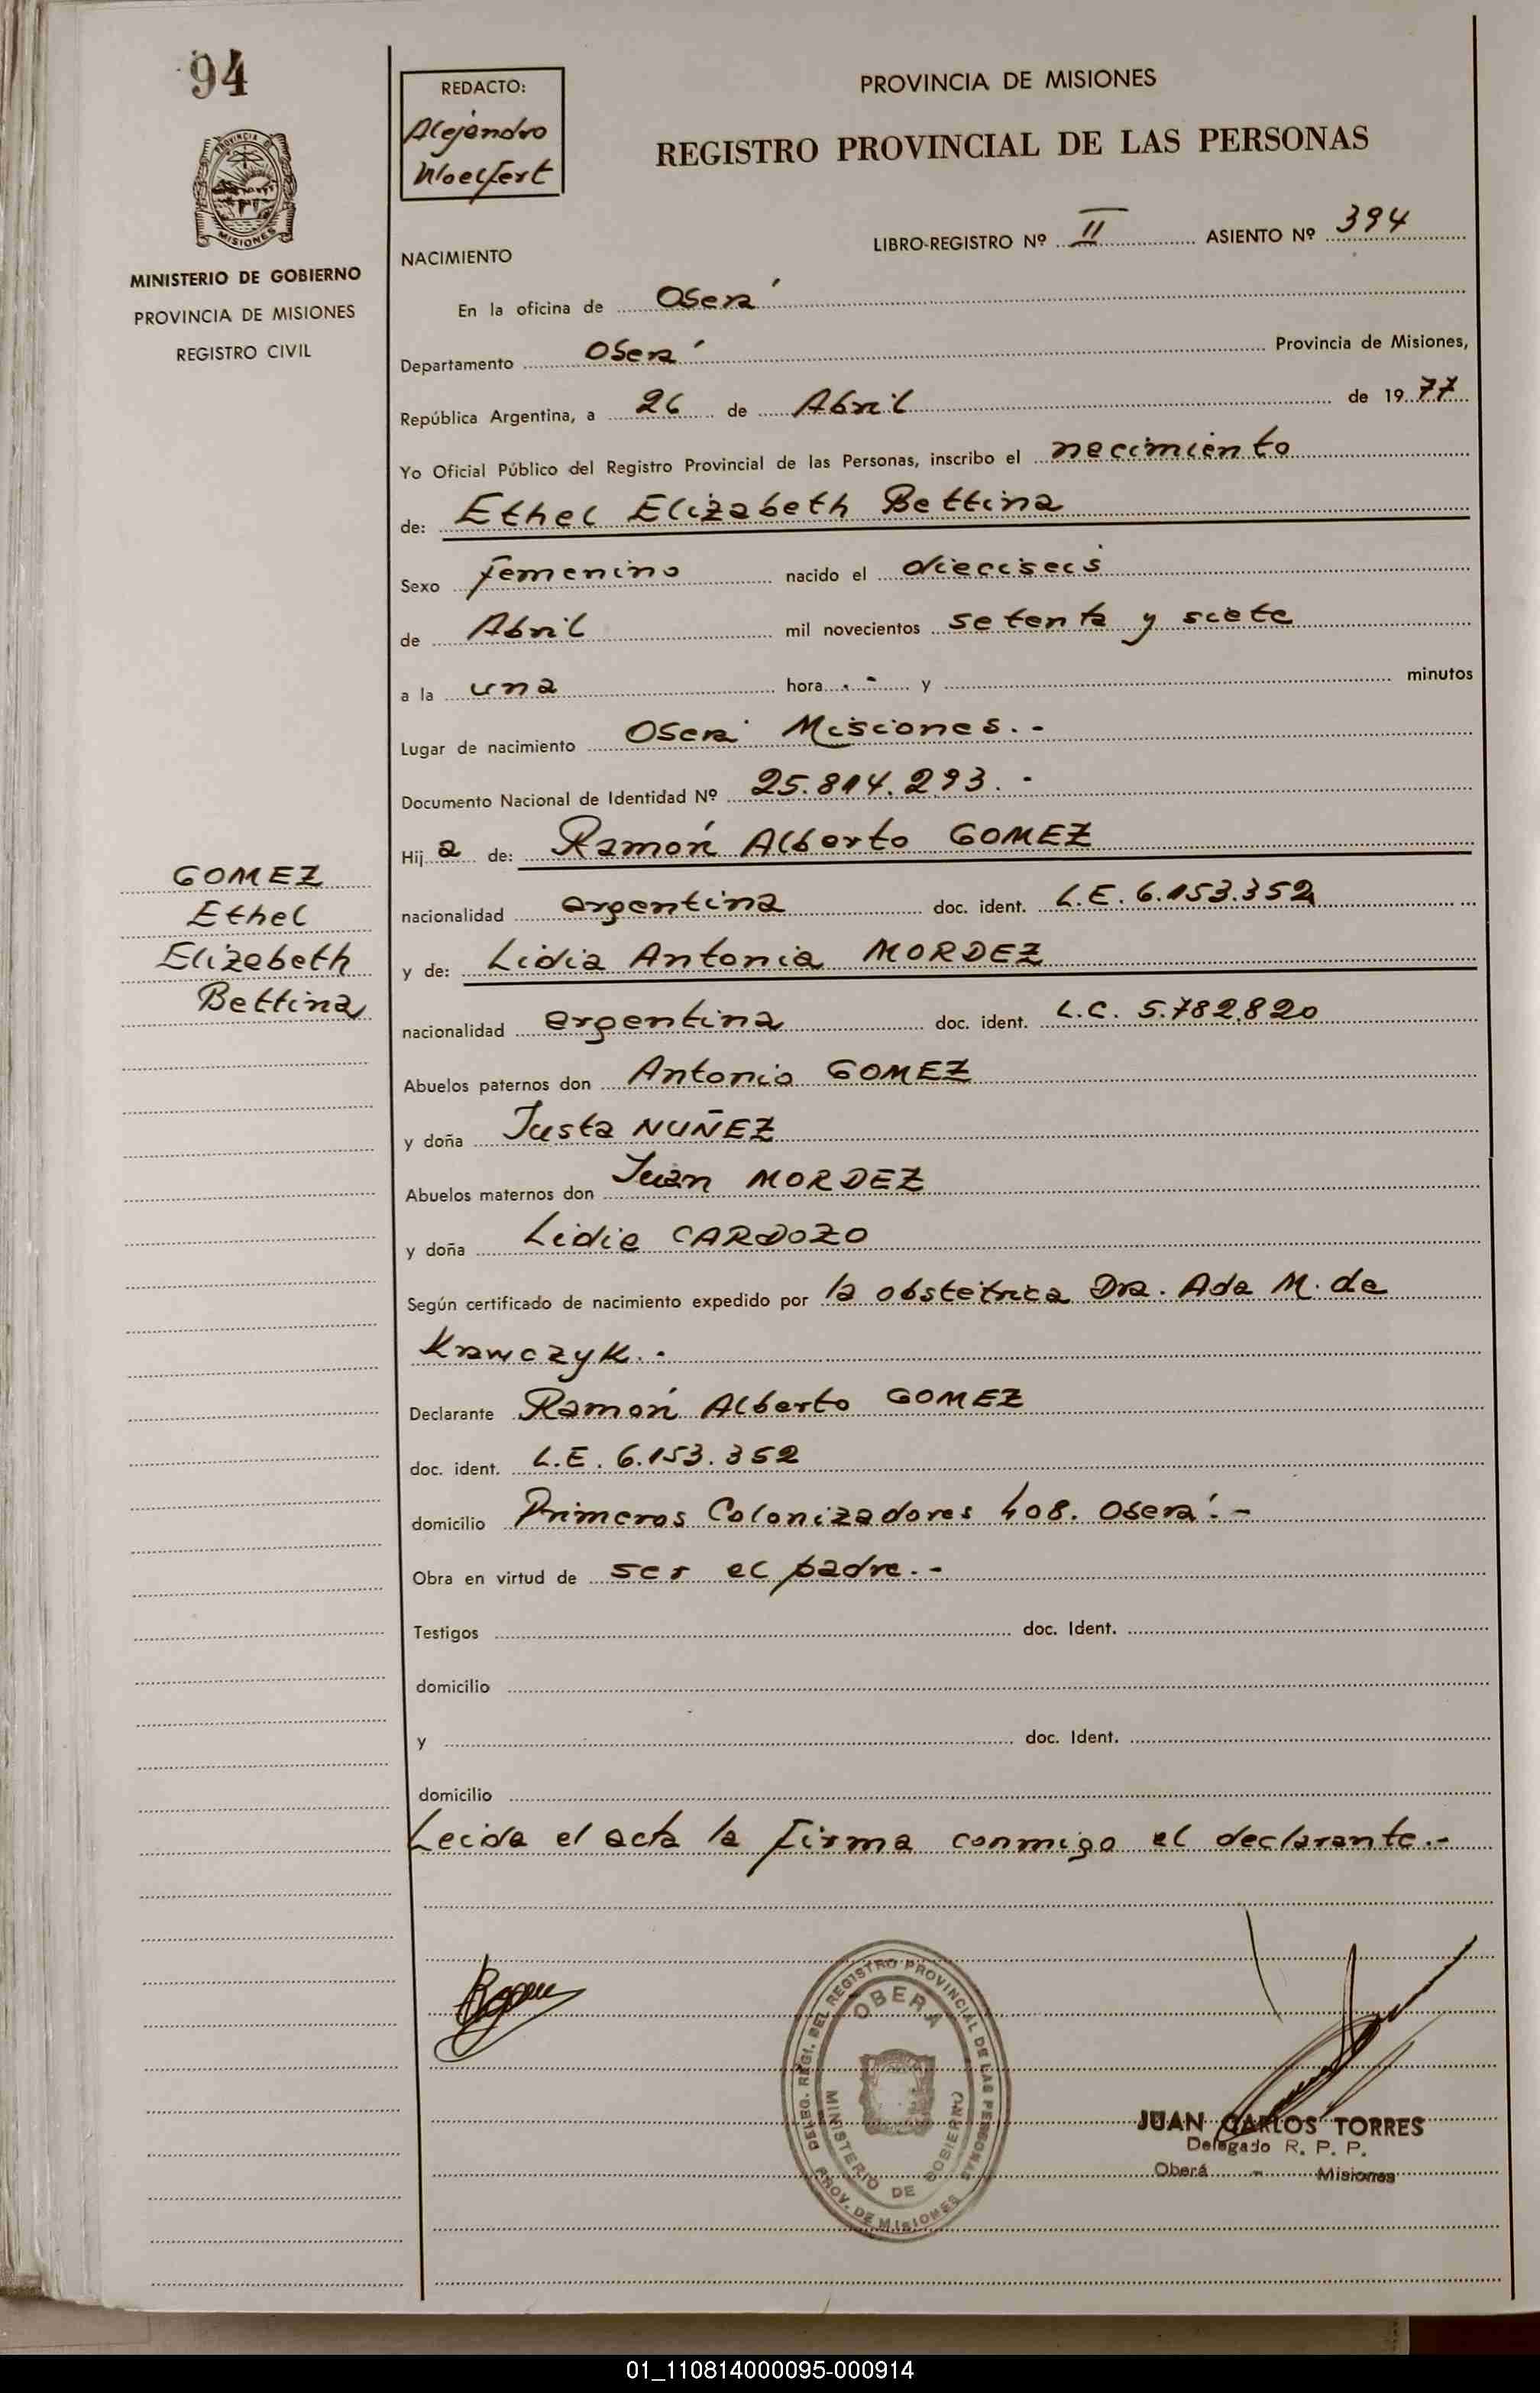 94
REDACTO:
Alejandro
Woelfert
PROVINCIA DE MISIONES
REGISTRO PROVINCIAL DE LAS PERSONAS
PROVINCIA DE
MISIONES
MINISTERIO DE GOBIERNO
PROVINCIA DE MISIONES
REGISTRO CIVIL
LIBRO-REGISTRO Nº II ASIENTO Nº 394
NACIMIENTO
En la oficina de Oberá
Departamento Oberá Provincia de Misiones,
República Argentina, a 26 de Abril de 1977
Yo Oficial Público del Registro Provincial de las Personas, inscribo el nacimiento
de: Ethel Elizabeth Bettina
Sexo femenino nacido el dieciseis
de Abril mil novecientos setenta y siete
a la una hora . - y minutos
Lugar de nacimiento Oberá Misiones.-
Documento Nacional de Identidad Nº 25.814.293.-
Hij a de: Ramón Alberto GOMEZ
nacionalidad argentina doc. ident. L.E. 6.153.352
y de: Lidia Antonia MORDEZ
nacionalidad argentina doc. ident. L.C. 5.782.820
GOMEZ
Ethel
Elizabeth
Bettina
Abuelos paternos don Antonio GOMEZ
y doña Justa NUÑEZ
Abuelos maternos don Juan MORDEZ
y doña Lidia CARDOZO
Según certificado de nacimiento expedido por la obstétrica Dra. Ada M. de
Krawczyk.-
Declarante Ramón Alberto GOMEZ
doc. ident. L.E. 6.153.352
domicilio Primeros Colonizadores 408. Oberá.-
Obra en virtud de ser el padre.-
Testigos doc. Ident.
domicilio
y doc. Ident.
domicilio
Leida el acta la firma conmigo el declarante.-
DELEG. REGI. DEL REGISTRO PROVINCIAL DE LAS PERSONAS
OBERA
MINISTERIO DE GOBIERNO
PROV. DE MISIONES
JUAN CARLOS TORRES
Delegado R. P. P.
Oberá - Misiones
01_110814000095-000914